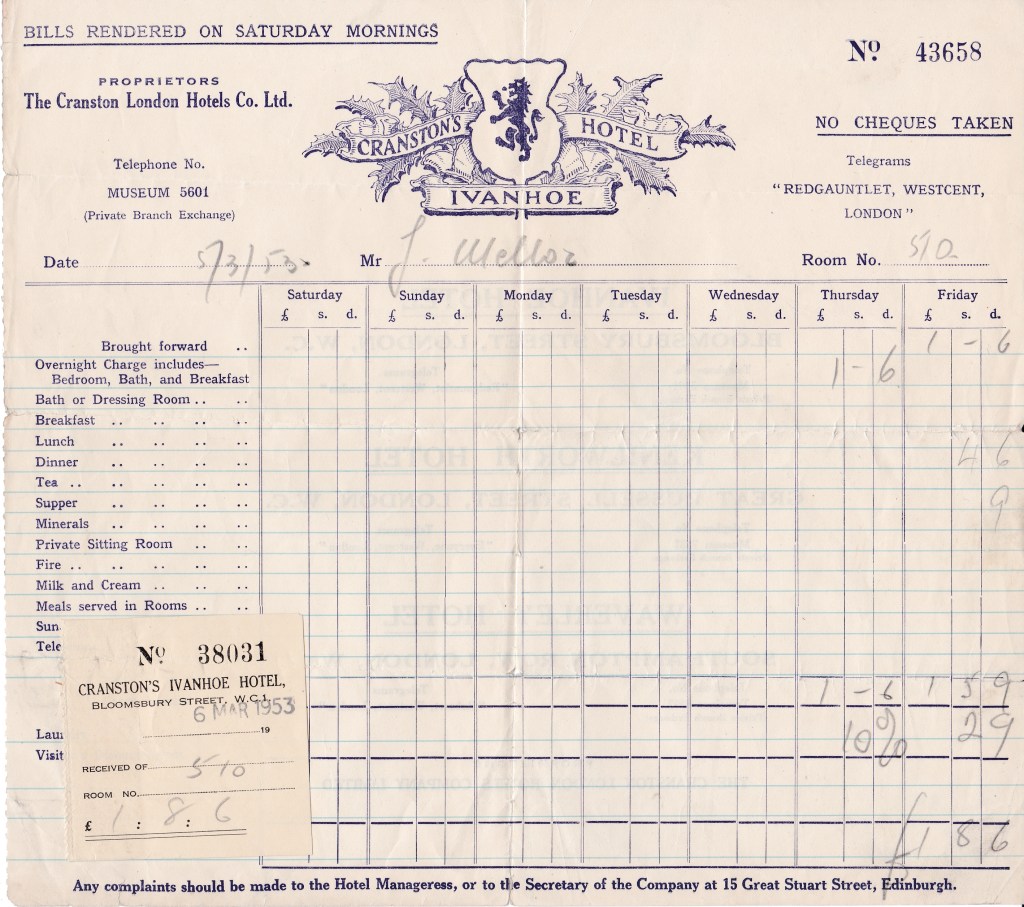 BILLS RENDERED ON SATURDAY MORNINGS
Nº 43658
PROPRIETORS
The Cranston London Hotels Co. Ltd.
CRANSTON'S HOTEL
IVANHOE
NO CHEQUES TAKEN
Telephone No.
MUSEUM 5601
(Private Branch Exchange)
Telegrams
"REDGAUNTLET, WESTCENT,
LONDON"
Date 5/3/53. Mr J. Mellor Room No. 510
Saturday Sunday Monday Tuesday Wednesday Thursday Friday
£ s. d. £ s. d. £ s. d. £ s. d. £ s. d. £ s. d. £ s. d.
Brought forward .. 1 - 6
Overnight Charge includes—
Bedroom, Bath, and Breakfast 1 - 6
Bath or Dressing Room .. ..
Breakfast .. .. .. ..
Lunch .. .. .. ..
Dinner .. .. .. .. 4 6
Tea .. .. .. .. ..
Supper .. .. .. .. 9
Minerals .. .. .. ..
Private Sitting Room .. ..
Fire .. .. .. .. ..
Milk and Cream .. .. ..
Meals served in Rooms .. ..
Sun
Tele
1 - 6 1 5 9
Lau 10% 2 9
Visit
£1 8 6
Nº 38031
CRANSTON'S IVANHOE HOTEL,
BLOOMSBURY STREET, W.C.1.
6 MAR 1953
19
RECEIVED OF 510
ROOM NO.
£ 1 : 8 : 6
Any complaints should be made to the Hotel Manageress, or to the Secretary of the Company at 15 Great Stuart Street, Edinburgh.